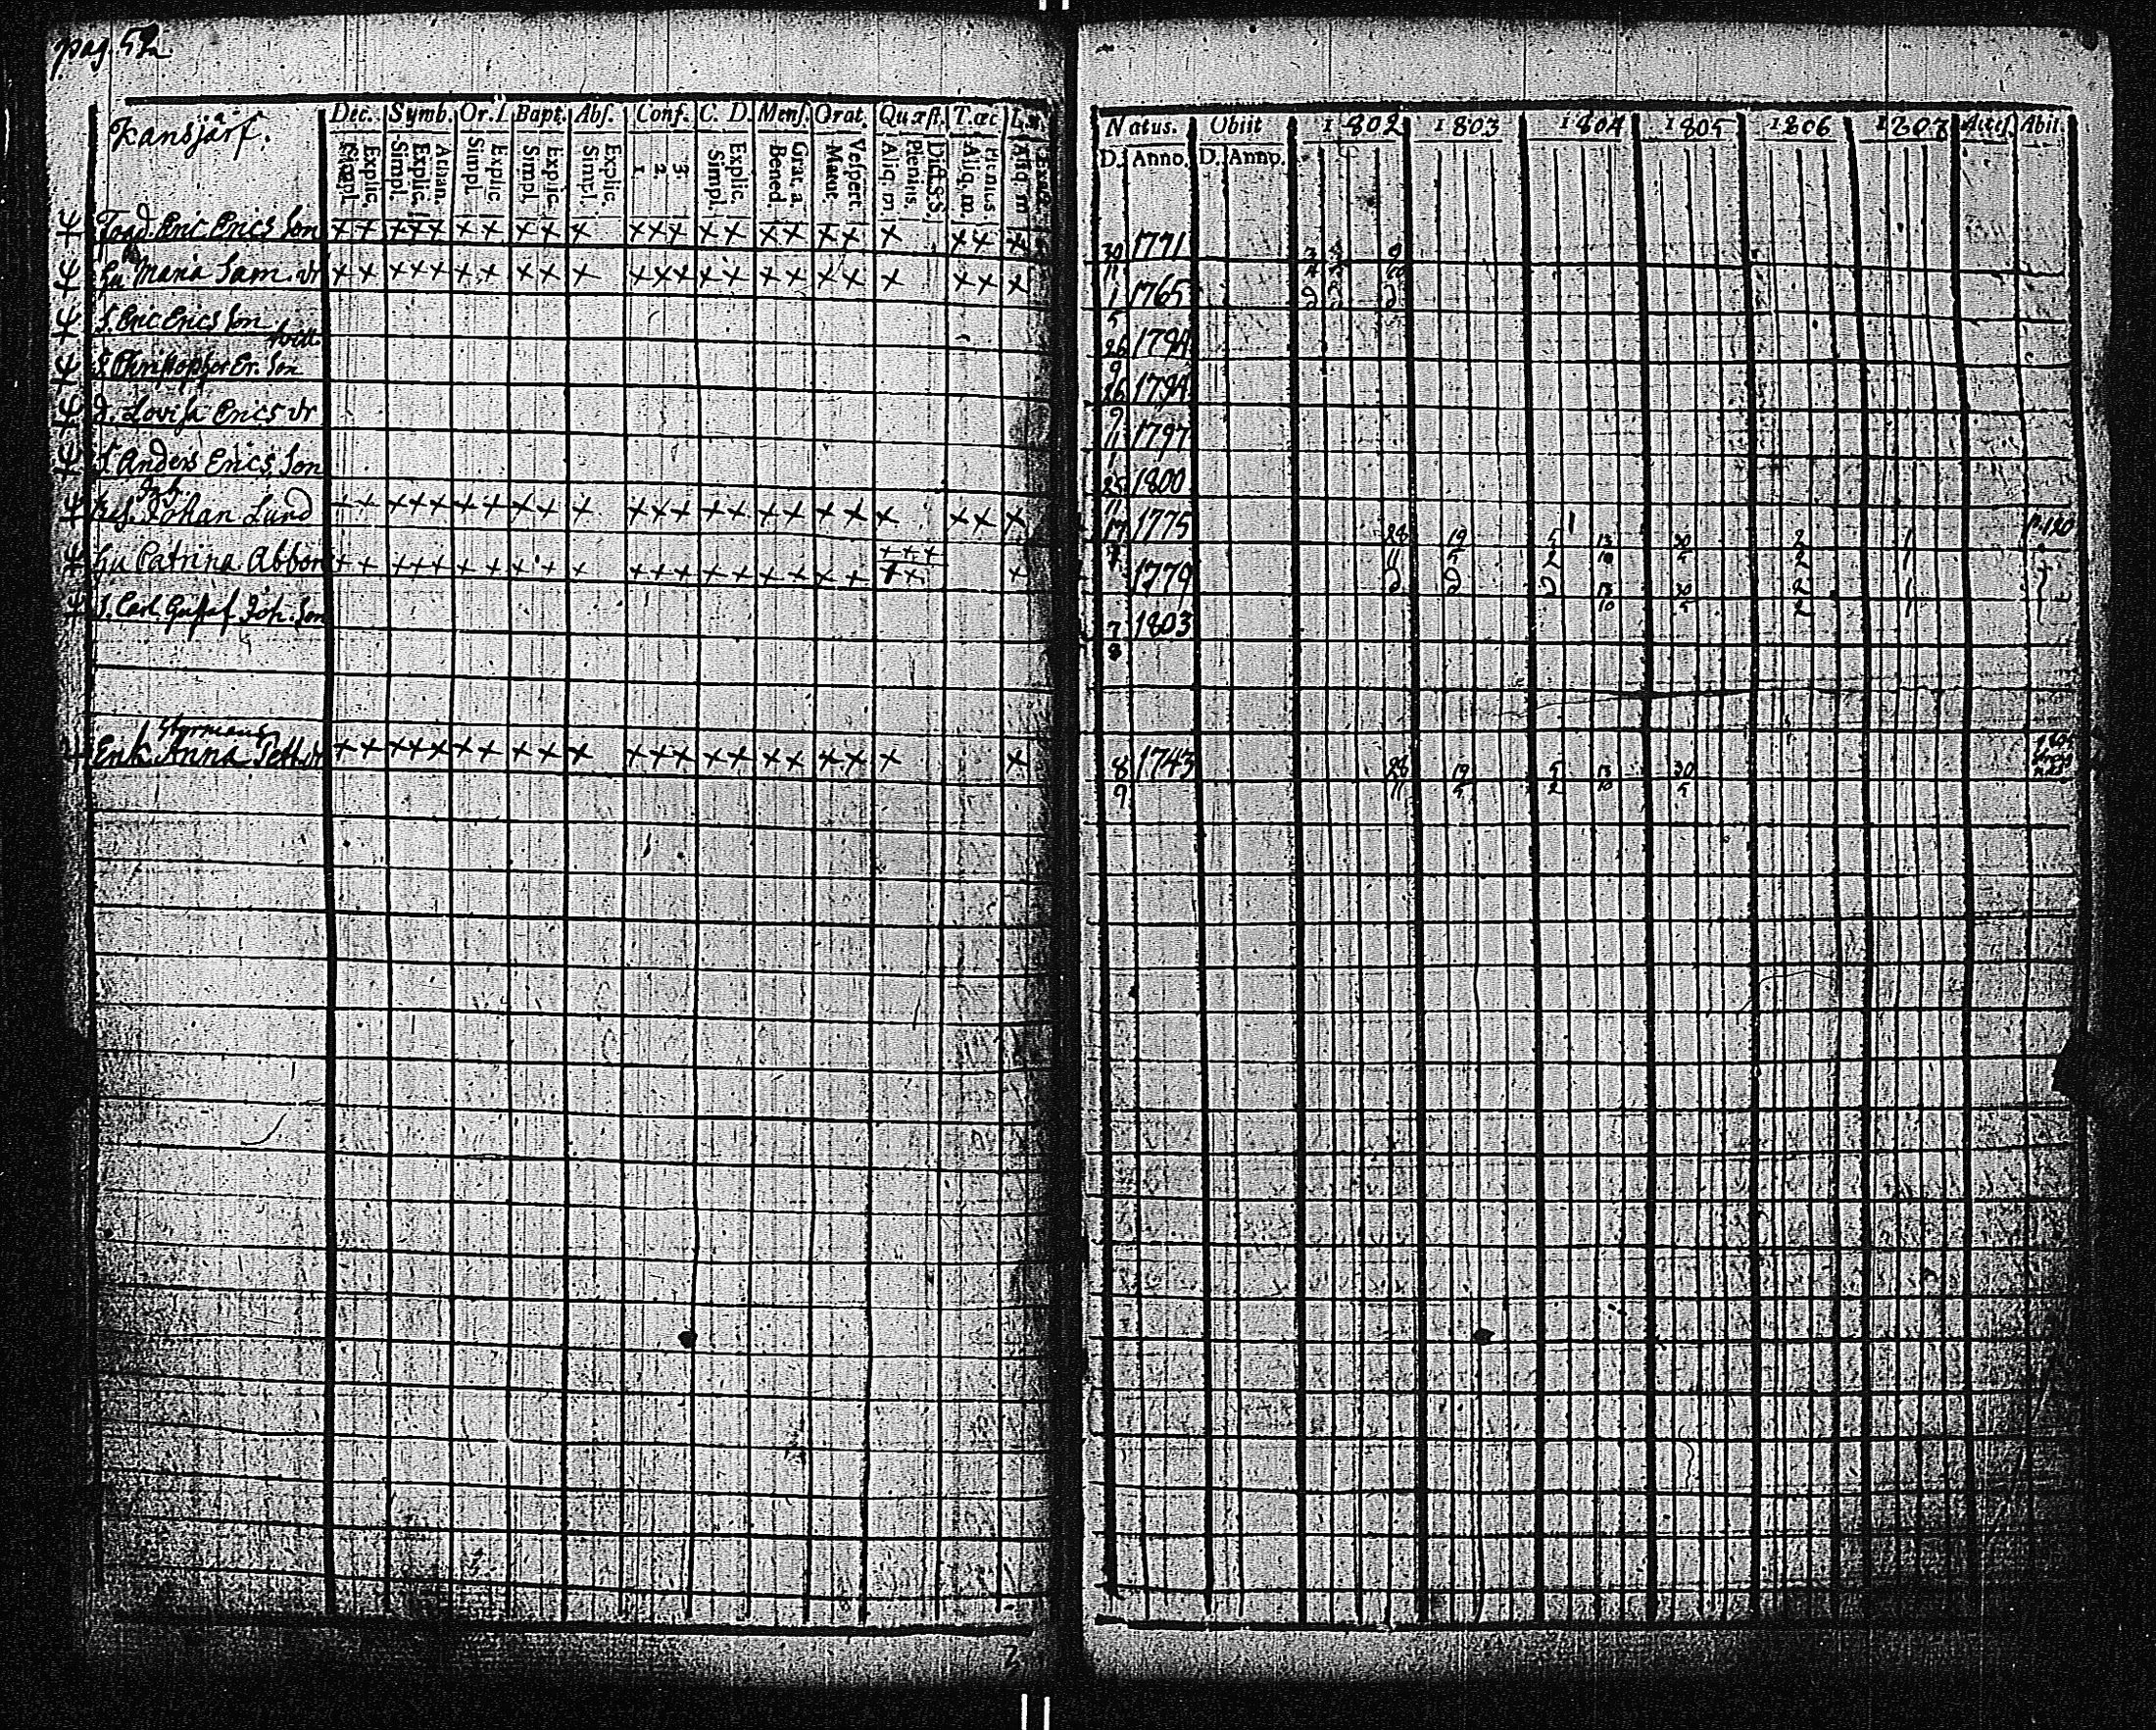 pag. 52.
Kansjärf.
Dec. Symb. Or. D. Bapt. Abs. Conf. C. D. Mens. Orat. Quæst. T. œc
Simpl. Explic. Simpl. Explic. Athan. Simpl. Explic. Simpl. Explic. Simpl. Explic. 1 2 3 Simpl. Explic. Bened. Grat. a. Matut. Vespert. Aliq. m. Plenius. Dict. S.S. Aliq. m. Plenius. Aliq. m. Exact.
Natus. Obiit 1802 1803 1804 1805 1806 1807 Access. Abit.
D. Anno. D. Anno.
Eric Erics Son 30/11 1771
Hu Maria Sam. dr 1/5 1765
S. Eric Erics Son 26/9 1794
S. Christopher Er. Son 26/9 1794
D. Lovisa Erics dr 11/1 1797
S. Anders Erics Son 25/11 1800
Johan Lund 17 1775 28/11 19/5 5/2 13/10 30/5 2/2 1/1 p. 120
Hu Catrina Abbor 1779 D D D 13/10 30/5 2/2 1/1
S. Carl Gustaf Joh. Son 7/8 1803
Enk. Anna Pett. dr 8/9 1743 28/11 19/5 5/2 13/10 30/5